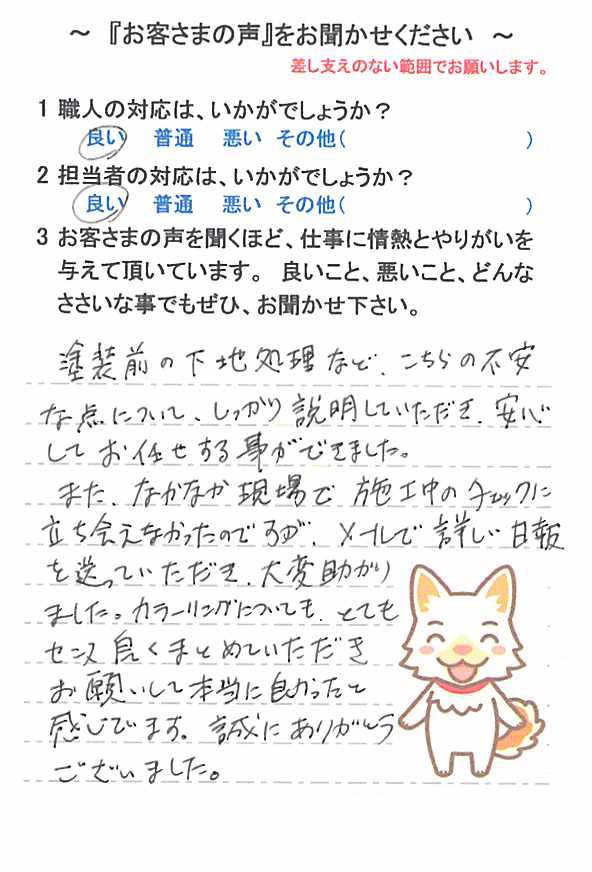 ～ 『お客さまの声』をお聞かせください ～
差し支えのない範囲でお願いします。
1 職人の対応は、いかがでしょうか？
良い 普通 悪い その他( )
2 担当者の対応は、いかがでしょうか？
良い 普通 悪い その他( )
3 お客さまの声を聞くほど、仕事に情熱とやりがいを
与えて頂いています。 良いこと、悪いこと、どんな
ささいな事でもぜひ、お聞かせ下さい。
塗装前の下地処理など、こちらの不安
な点について、しっかり説明していただき、安心
してお任せする事ができました。
また、なかなか現場で施工中のチェックに
立ち会えなかったのですが、メールで詳しい日報
を送っていただき、大変助かり
ました。カラーリングについても、とても
センス良くまとめていただき
お願いして本当に良かったと
感じてます。誠にありがとう
ございました。